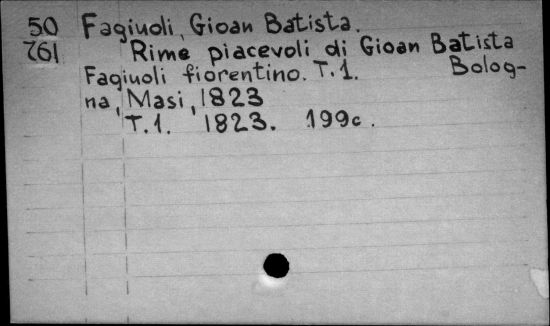 50 Fagiuoli, Gioan Batista.
761 Rime piacevoli di Gioan Batista
Fagiuoli fiorentino. T.1. Bolog-
na, Masi, 1823
T.1. 1823. 199c.